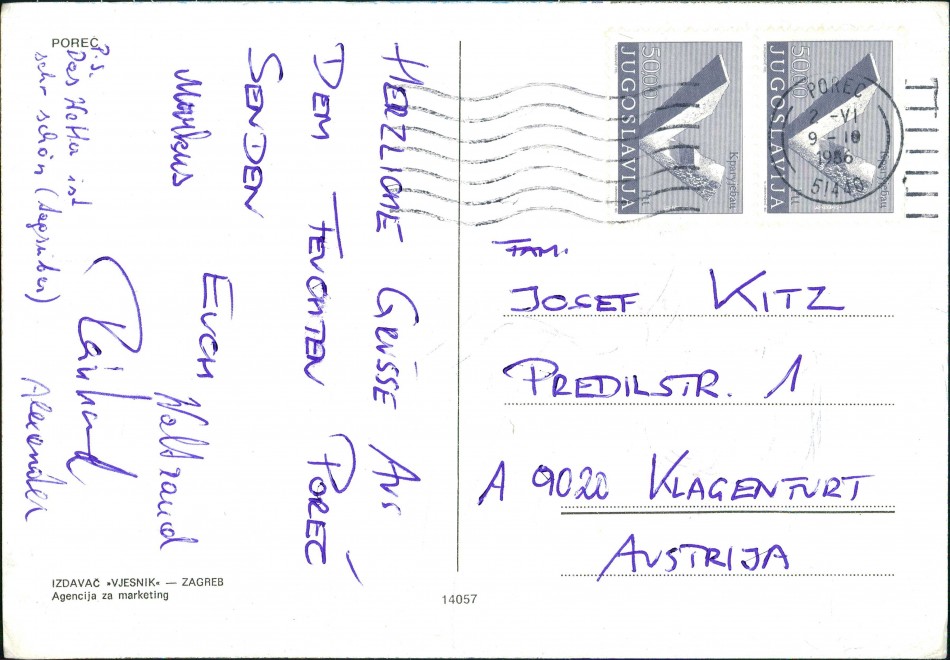 POREČ
HERZLICHE GRÜSSE AUS
DEM FEUCHTEN POREČ
SENDEN EUCH
Markus Waltraud
Alexander
P.S.
Das Wetter ist
sehr schön
IZDAVAČ »VJESNIK« — ZAGREB
Agencija za marketing
14057
50.00
JUGOSLAVIJA
Крагујевац
ПТТ
50.00
JUGOSLAVIJA
POREČ
2 -VI
9 - 10
1986
51440
FAM.
JOSEF KITZ
PREDILSTR. 1
A 9020 KLAGENFURT
AUSTRIJA